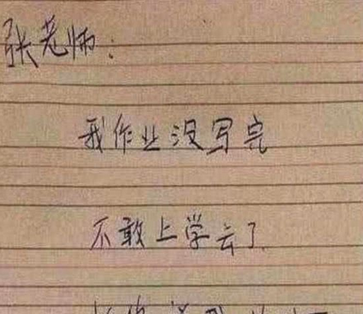 张老师:
我作业没写完
不敢上学去了